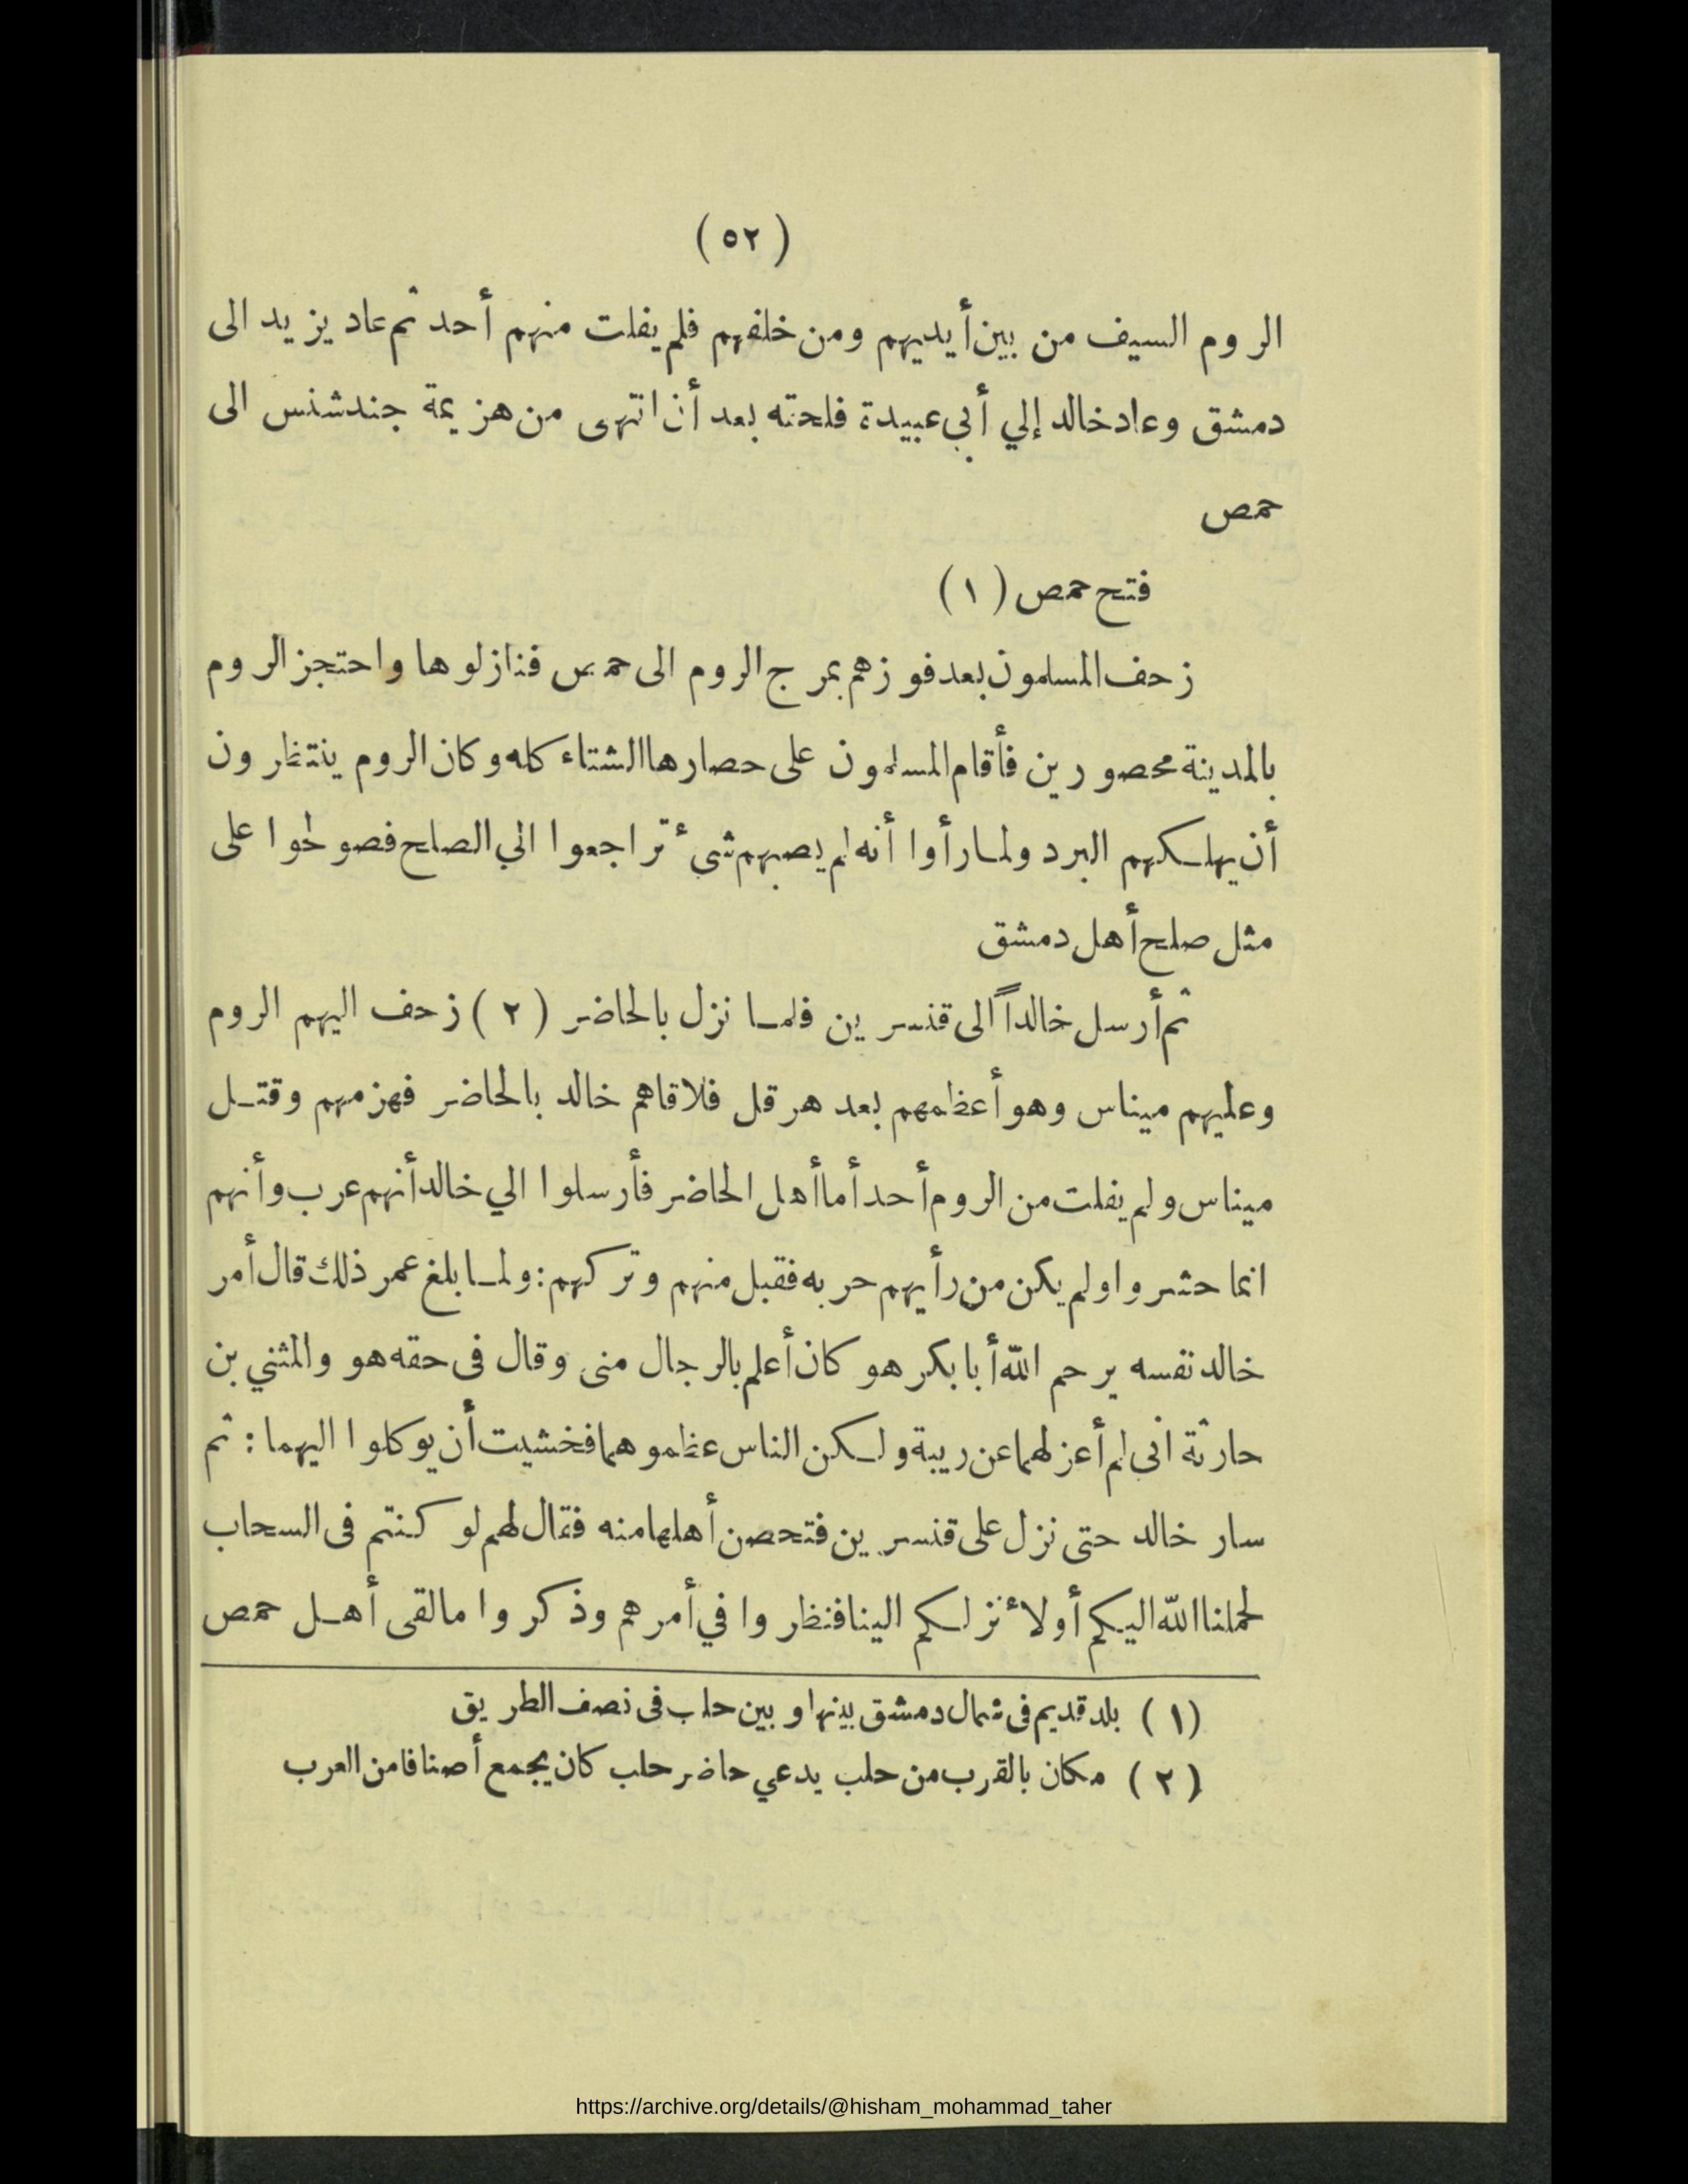 (٥٢)
الروم السيف من بين أيديهم ومن خلفهم فلم يفلت منهم أحد ثم عاد يزيد الى
دمشق وعاد خالد إلي أبي عبيدة فلحته بعد أن انتهى من هزيمة جند شنس الى
حمص
فتح حمص (١)
زحف المسلمون بعد فوزهم بمرج الروم الى حمص فنازلوها واحتجز الروم
بالمدينة محصورين فأقام المسلمون على حصارها الشتاء كله وكان الروم ينتظرون
أن يهلكهم البرد ولما رأوا أنه لم يصبهم شئ تراجعوا الي الصلح فصولحوا على
مثل صلح أهل دمشق
ثم أرسل خالداً الى قنسرين فلما نزل بالحاضر (٢) زحف اليهم الروم
وعليهم ميناس وهو أعظمهم بعد هرقل فلاقاهم خالد بالحاضر فهزمهم وقتل
ميناس ولم يفلت من الروم أحد أما أهل الحاضر فأرسلوا الي خالد أنهم عرب وأنهم
انما حشروا ولم يكن من رأيهم حربه فقبل منهم وتركهم : ولما بلغ عمر ذلك قال أمر
خالد نفسه يرحم الله أبا بكر هو كان أعلم بالرجال منى وقال فى حقه هو والمثني بن
حارثة انى لم أعزلهما عن ريبة ولكن الناس عظموهما فخشيت أن يوكلوا اليهما : ثم
سار خالد حتى نزل على قنسرين فتحصن أهلها منه فقال لهم لو كنتم فى السحاب
لحملنا الله اليكم أو لأنزلكم الينا فنظروا في أمرهم وذكروا مالقى أهل حمص
(١) بلد قديم فى شمال دمشق بينها وبين حلب فى نصف الطريق
(٢) مكان بالقرب من حلب يدعي حاضر حلب كان يجمع أصنافا من العرب
https://archive.org/details/@hisham_mohammad_taher